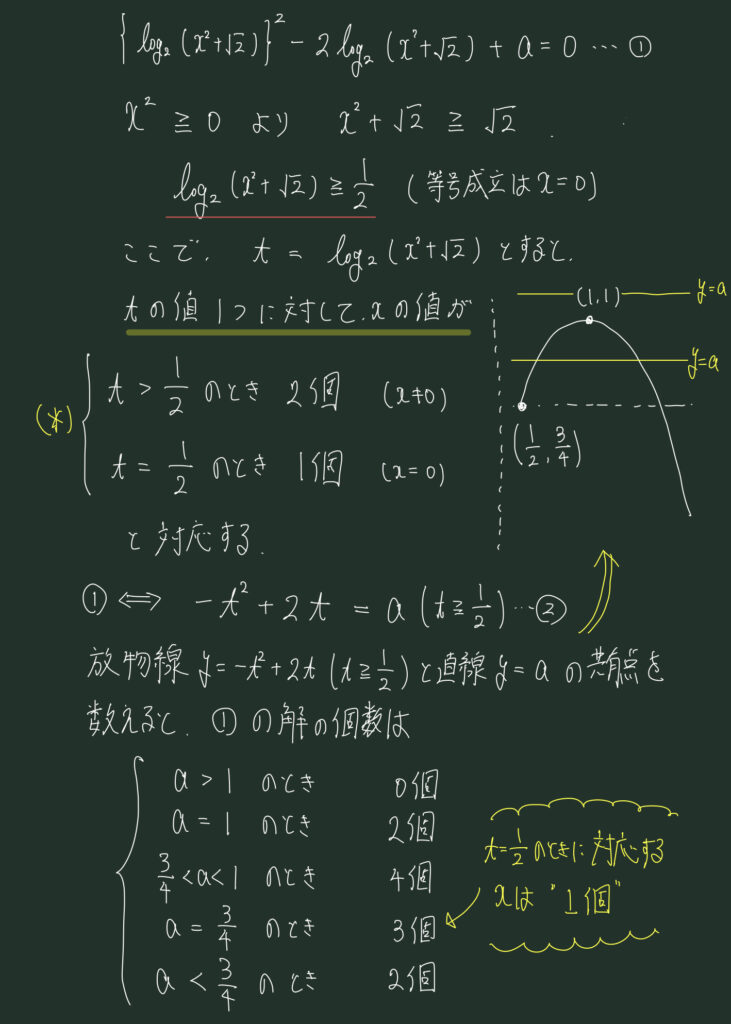 {log₂(x²+√2)}² − 2log₂(x²+√2) + a = 0 … ①
x² ≧ 0 より x²+√2 ≧ √2 .
log₂(x²+√2) ≧ 1/2 (等号成立は x=0)
ここで、 t = log₂(x²+√2) とすると、
tの値 1つに対して、xの値が
(*)
t > 1/2 のとき 2個 (x≠0)
t = 1/2 のとき 1個 (x=0)
と対応する.
(1,1)
y=a
y=a
(1/2, 3/4)
① ⟺ −t²+2t = a (t≧1/2) … ②
放物線 y=−t²+2t (t≧1/2) と直線 y=a の共有点を
数えると、①の解の個数は
a > 1 のとき 0個
a = 1 のとき 2個
3/4 < a < 1 のとき 4個
a = 3/4 のとき 3個
a < 3/4 のとき 2個
t=1/2 のときに対応する
xは "1個"